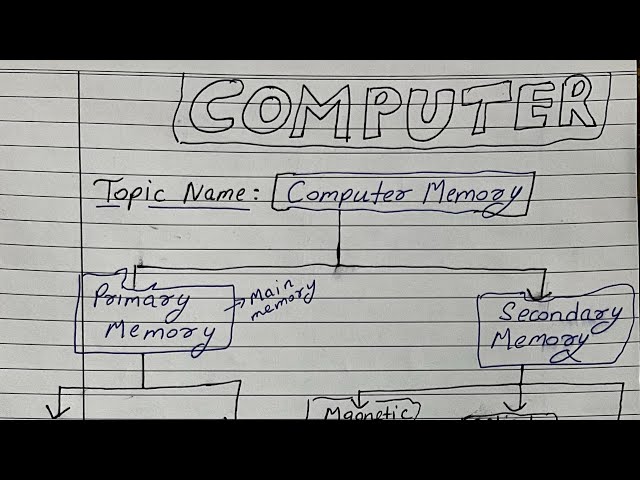 COMPUTER
Topic Name: Computer Memory
Primary
Memory
Main
memory
Secondary
Memory
Magnetic